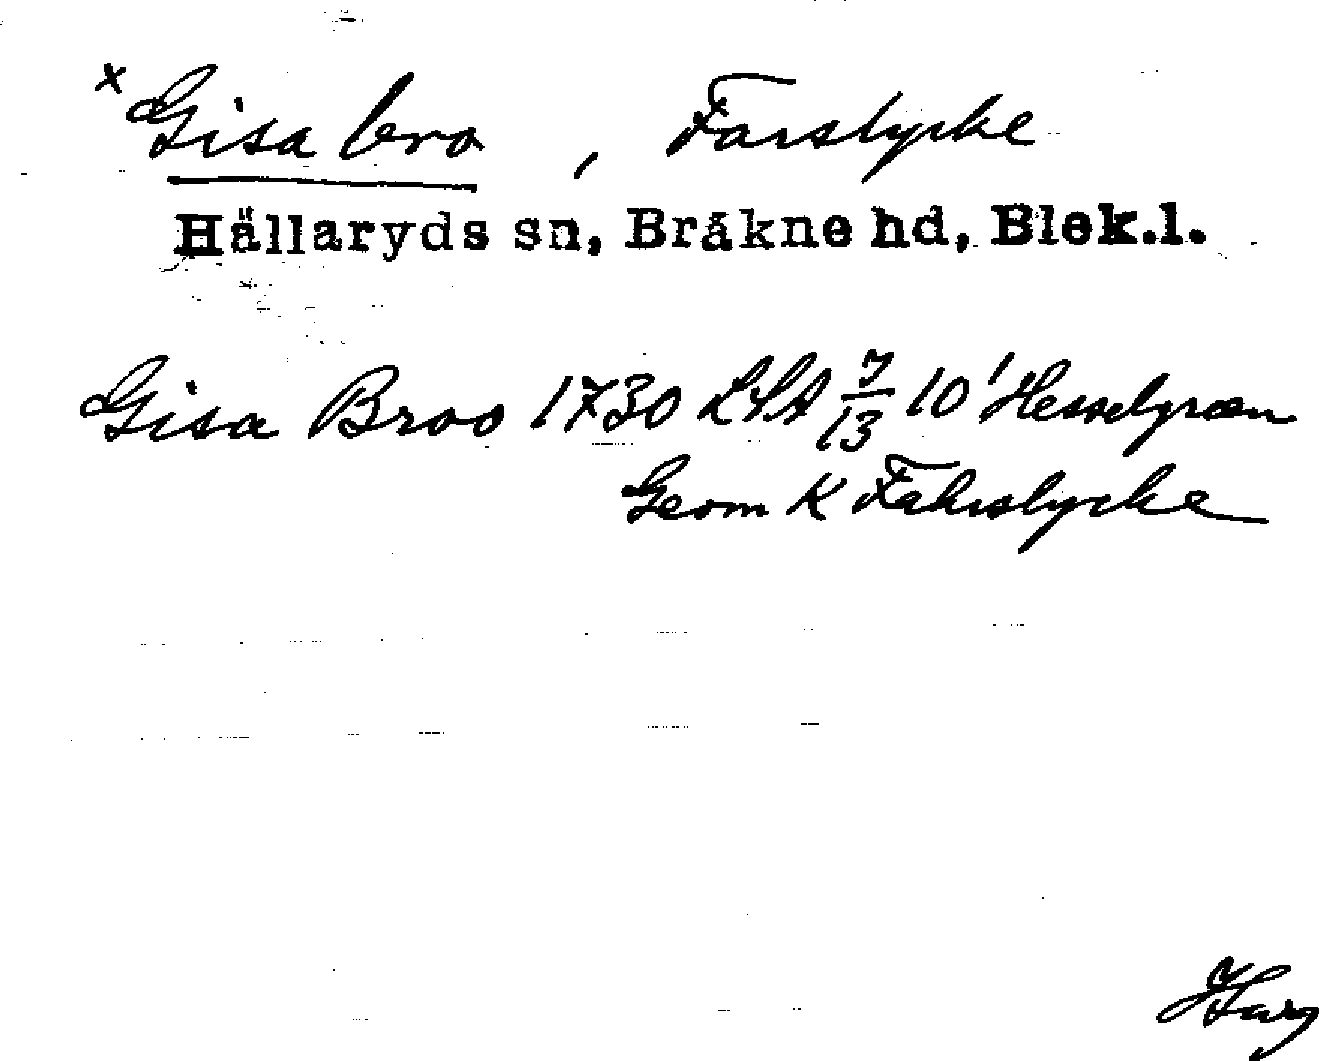 x Gisa bro, Farslycke
Hällaryds sn, Bräkne hd, Blek.l.
Gisa Broo 1730 LSA 7/13 10' Hesselgræn
Geom K Fahrslycke